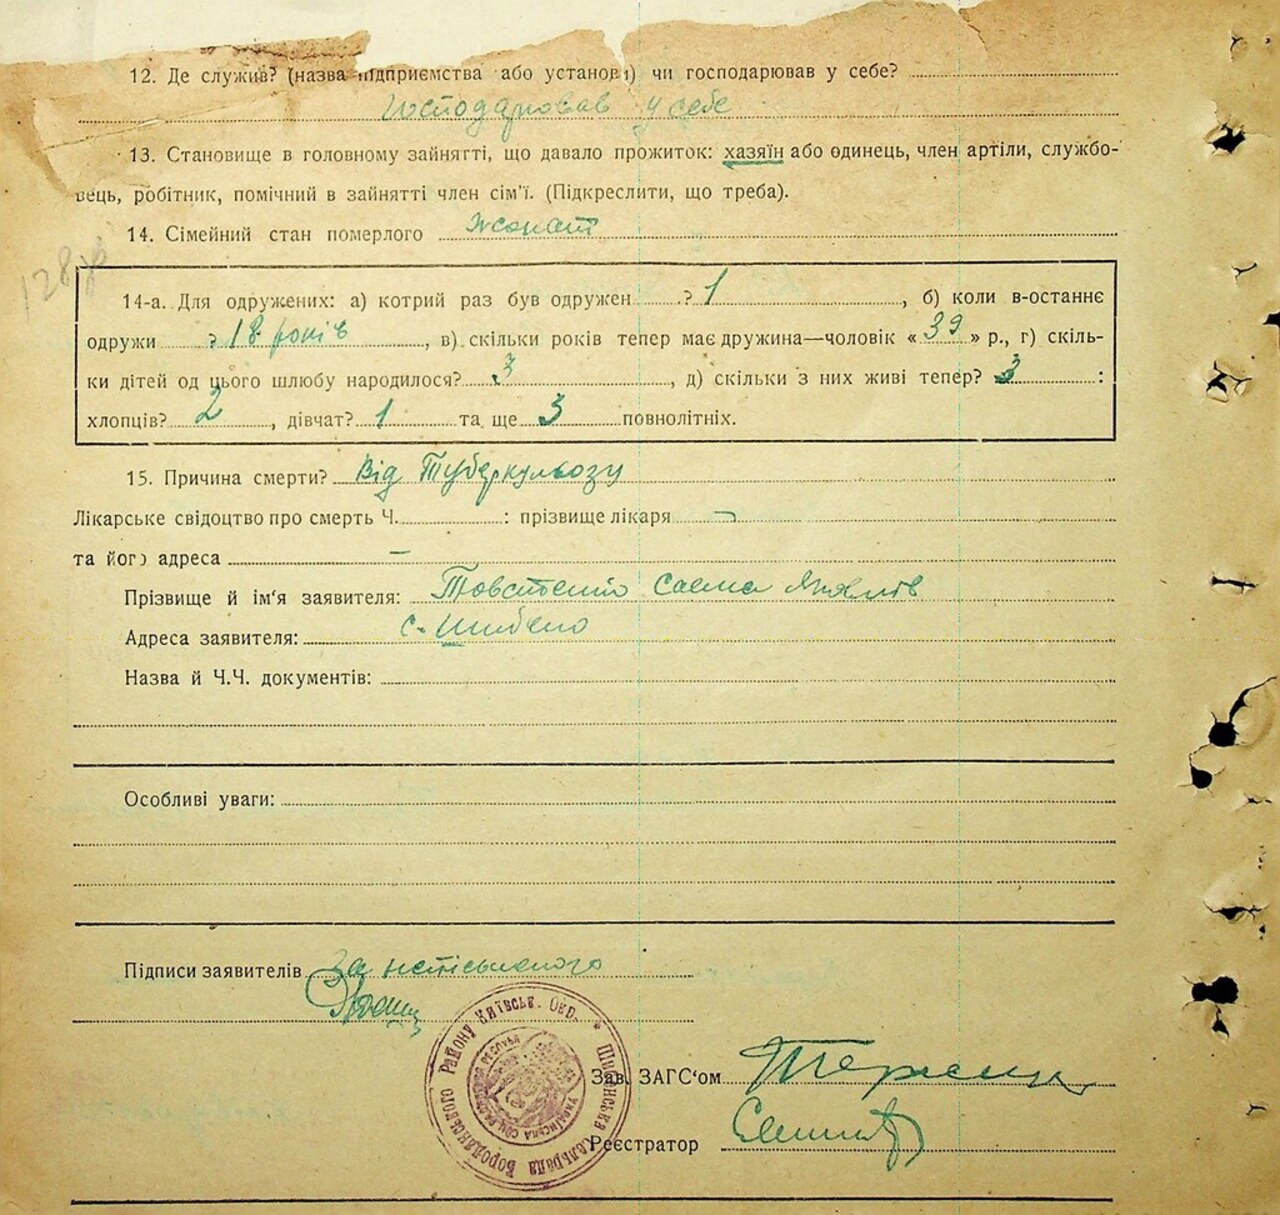 12. Де служив? (назва підприємства або установи) чи господарював у себе?
Господарював у себе
13. Становище в головному зайнятті, що давало прожиток: хазяїн або одинець, член артіли, службо-
вець, робітник, помічний в зайнятті член сім'ї. (Підкреслити, що треба).
14. Сімейний стан померлого Жонат
128
14-а. Для одружених: а) котрий раз був одружен ? 1, б) коли в-останнє
одружи ? 18 років, в) скільки років тепер має дружина—чоловік « 39 » р., г) скіль-
ки дітей од цього шлюбу народилося? 3, д) скільки з них живі тепер? 3 :
хлопців? 2, дівчат? 1 та ще 3 повнолітніх.
15. Причина смерти? Від Туберкульозу
Лікарське свідоцтво про смерть Ч. : прізвище лікаря —
та його адреса —
Прізвище й ім'я заявителя:
Адреса заявителя: с.
Назва й Ч.Ч. документів:
Особливі уваги:
Підписи заявителів За неписьменого
Бородянського Району Київськ. Окр. * Шибенська Сельрада
Українська Соц. Радянська Республіка
Зав. ЗАГС'ом
Реєстратор